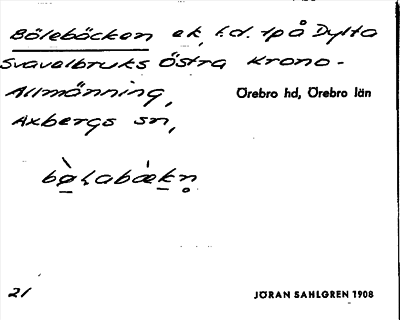 Bölebäcken ek, h.d. tp å Dylta
Svavelbruks Östra Krono-
Allmänning, Örebro hd, Örebro län
Axbergs sn,
bø̀ɬabæ̀kn̥
21 JÖRAN SAHLGREN 1908